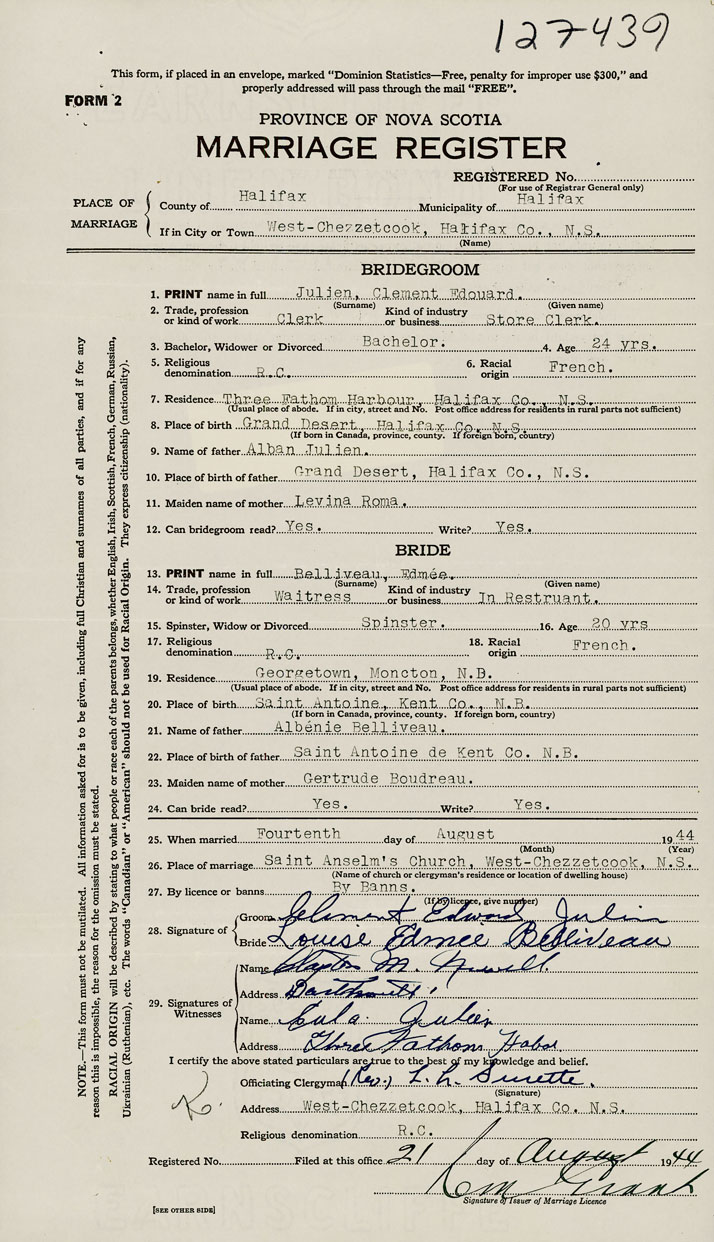 127439
This form, if placed in an envelope, marked "Dominion Statistics—Free, penalty for improper use $300," and
properly addressed will pass through the mail "FREE".
FORM 2
PROVINCE OF NOVA SCOTIA
MARRIAGE REGISTER
REGISTERED No.
(For use of Registrar General only)
PLACE OF MARRIAGE
County of Halifax Municipality of Halifax
If in City or Town West-Chezzetcook, Halifax Co., N.S.
(Name)
BRIDEGROOM
1. PRINT name in full Julien, Clement Edouard.
(Surname) (Given name)
2. Trade, profession or kind of work Clerk Kind of industry or business Store Clerk.
3. Bachelor, Widower or Divorced Bachelor. 4. Age 24 yrs.
5. Religious denomination R.C. 6. Racial origin French.
7. Residence Three Fathom Harbour, Halifax Co., N.S.
(Usual place of abode. If in city, street and No. Post office address for residents in rural parts not sufficient)
8. Place of birth Grand Desert, Halifax Co. N.S.
(If born in Canada, province, county. If foreign born, country)
9. Name of father Alban Julien.
10. Place of birth of father Grand Desert, Halifax Co., N.S.
11. Maiden name of mother Levina Roma.
12. Can bridegroom read? Yes. Write? Yes.
BRIDE
13. PRINT name in full Belliveau, Edmée.
(Surname) (Given name)
14. Trade, profession or kind of work Waitress Kind of industry or business In Restruant.
15. Spinster, Widow or Divorced Spinster. 16. Age 20 yrs
17. Religious denomination R.C. 18. Racial origin French.
19. Residence Georgetown, Moncton, N.B.
(Usual place of abode. If in city, street and No. Post office address for residents in rural parts not sufficient)
20. Place of birth Saint Antoine, Kent Co., N.B.
(If born in Canada, province, county. If foreign born, country)
21. Name of father Albénie Belliveau.
22. Place of birth of father Saint Antoine de Kent Co. N.B.
23. Maiden name of mother Gertrude Boudreau.
24. Can bride read? Yes. Write? Yes.
25. When married Fourteenth day of August 1944
(Month) (Year)
26. Place of marriage Saint Anselm's Church, West-Chezzetcook, N.S.
(Name of church or clergyman's residence or location of dwelling house)
27. By licence or banns By Banns.
(If by licence, give number)
28. Signature of
Groom Clement Edward Julien
Bride Louise Edmée Belliveau
29. Signatures of Witnesses
Name M.
Address Dartmouth
Name Julien
Address Three Fathom Habor
I certify the above stated particulars are true to the best of my knowledge and belief.
Officiating Clergyman (Rev.) L. L. Surette.
(Signature)
Address West-Chezzetcook, Halifax Co. N.S.
Religious denomination R.C.
Registered No. Filed at this office 21 day of August 1944
Grant
Signature of Issuer of Marriage Licence
[SEE OTHER SIDE]
NOTE.—This form must not be mutilated. All information asked for is to be given, including full Christian and surnames of all parties, and if for any
reason this is impossible, the reason for the omission must be stated.
RACIAL ORIGIN will be described by stating to what people or race each of the parents belongs, whether English, Irish, Scottish, French, German, Russian,
Ukrainian (Ruthenian), etc. The words "Canadian" or "American" should not be used for Racial Origin. They express citizenship (nationality).